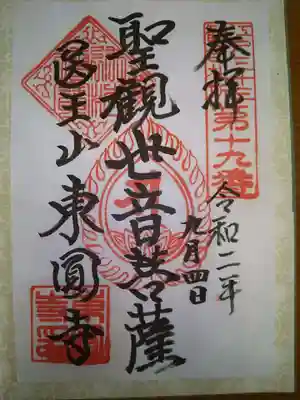 奉拝
第十九番
令和二年
九月四日
聖観世音菩薩
医王山東圓寺